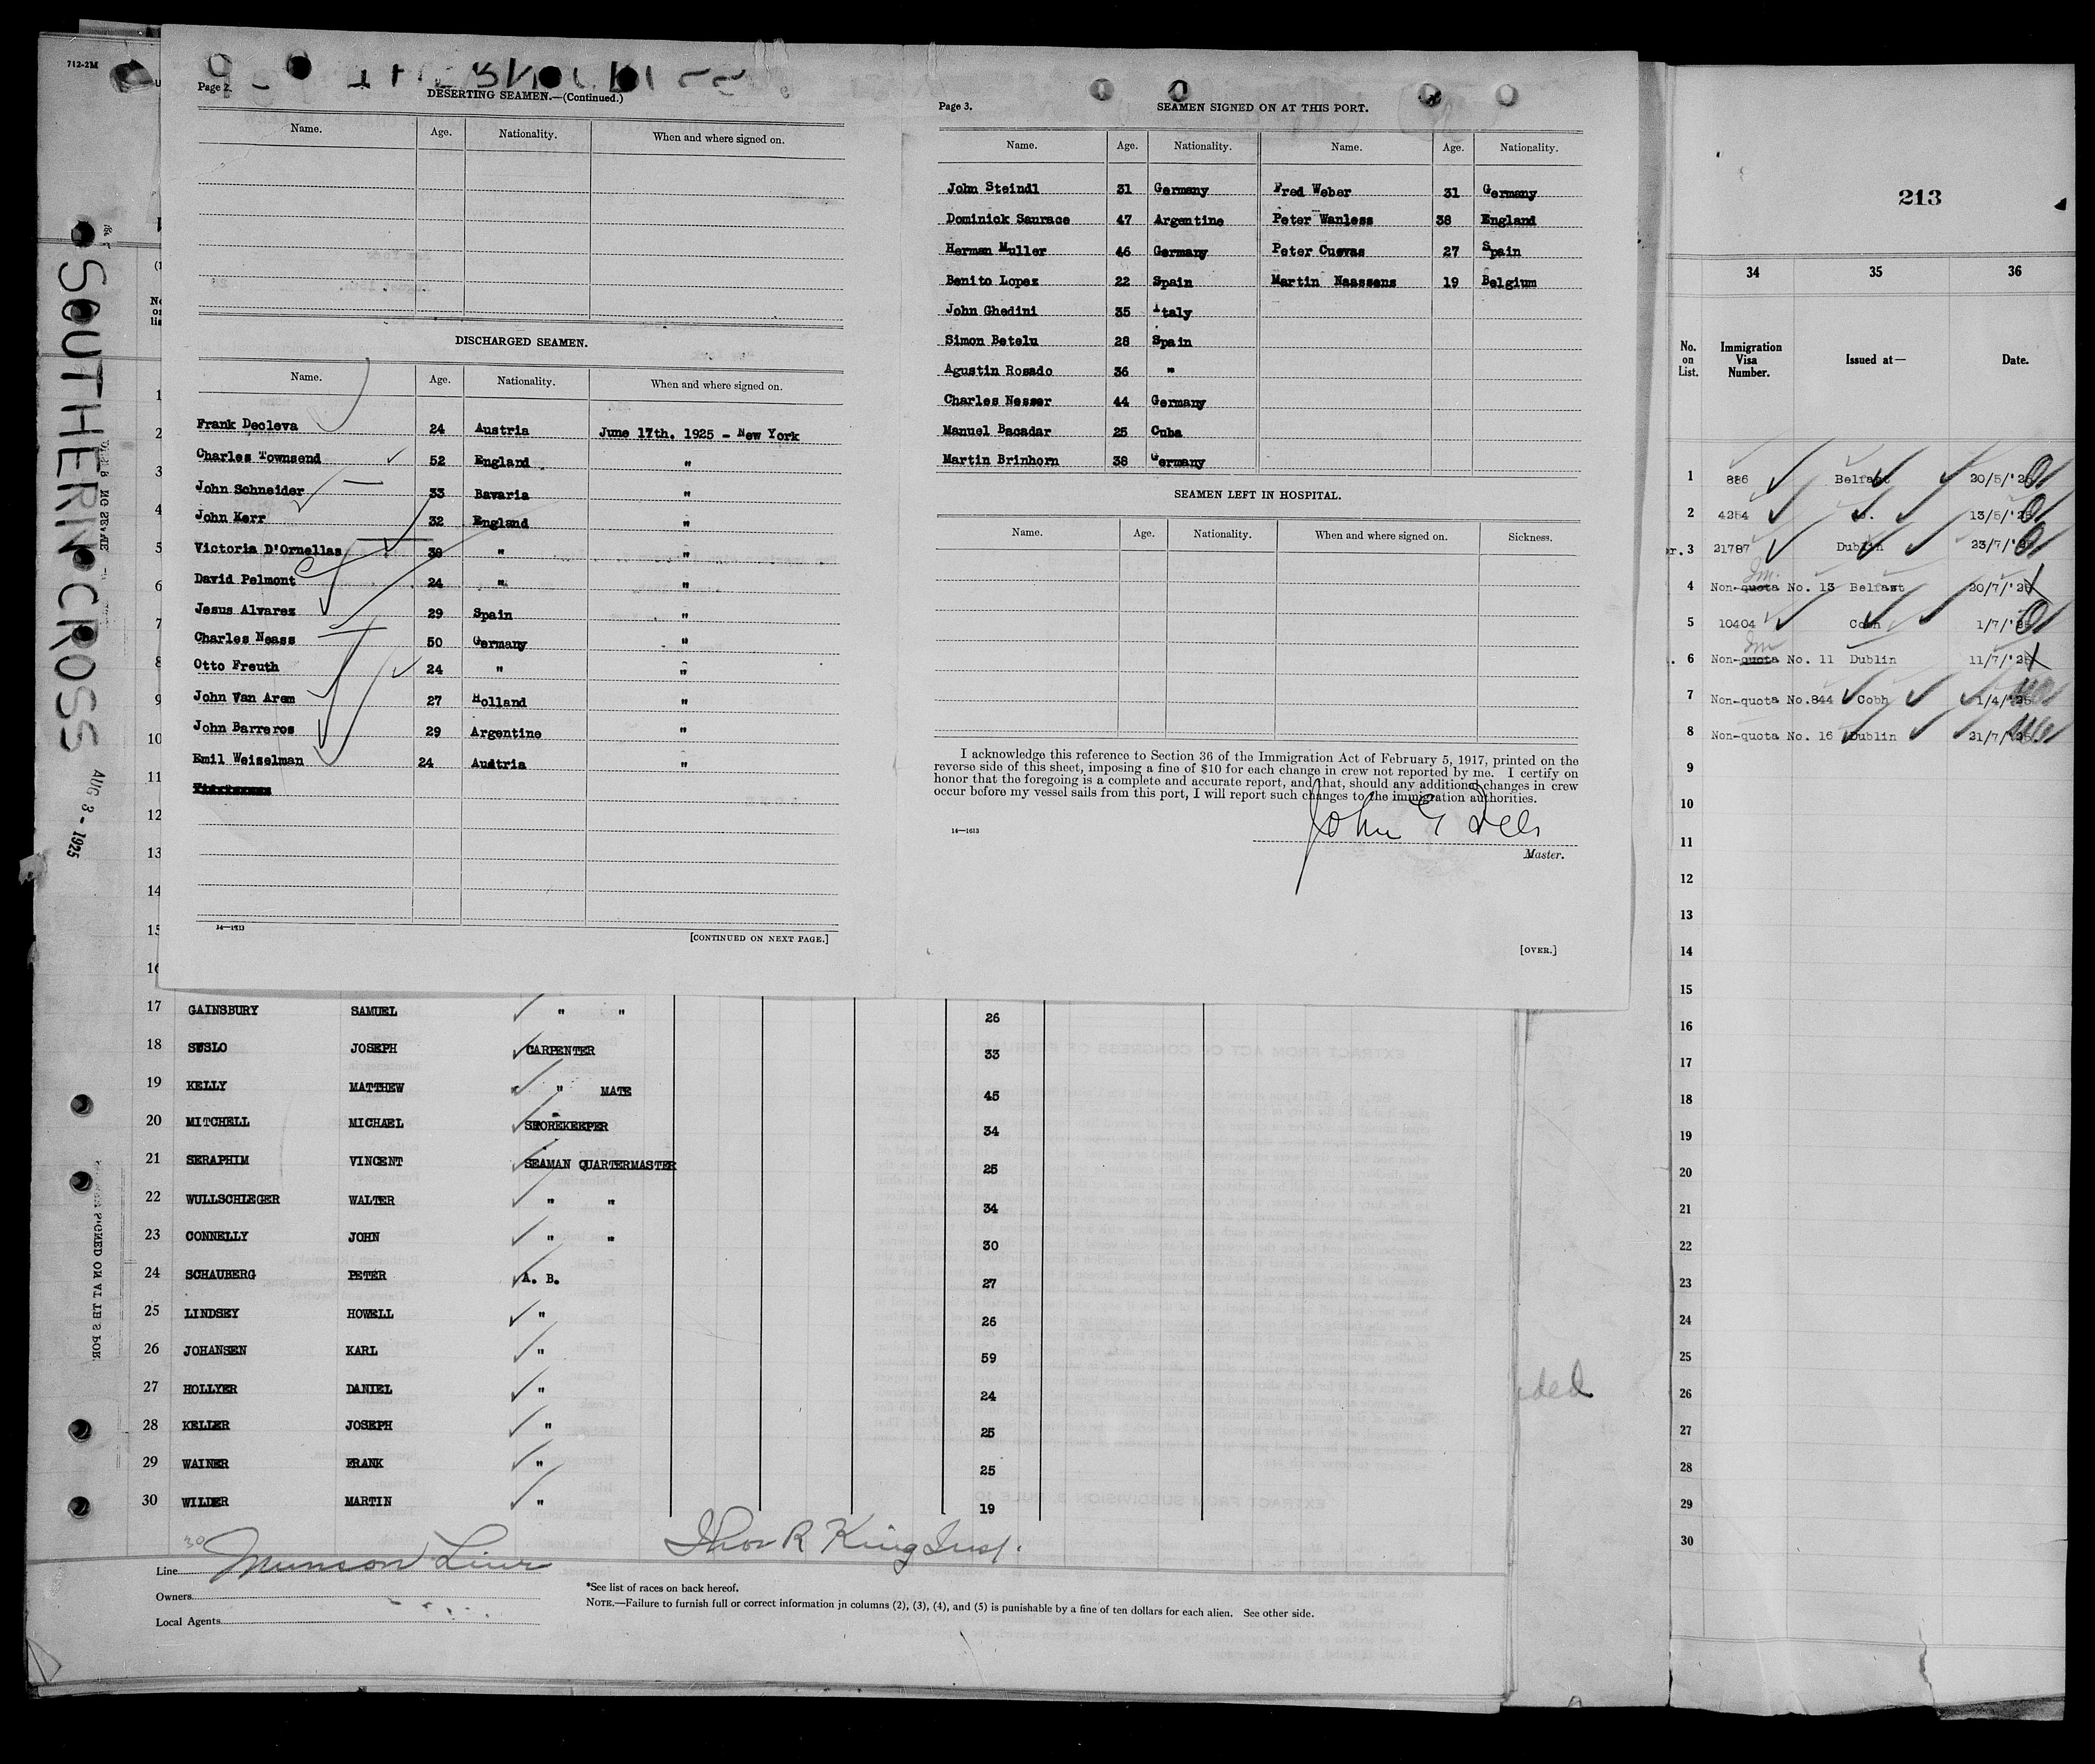 712-2M
SOUTHERN CROSS AUG 3 - 1925
Page 2.
DESERTING SEAMEN.—(Continued.)
Name. Age. Nationality. When and where signed on.
DISCHARGED SEAMEN.
Name. Age. Nationality. When and where signed on.
Frank Decleva 24 Austria June 17th. 1925 - New York
Charles Townsend 52 England "
John Schneider 33 Bavaria "
John Kerr 32 England "
Victoria D'Ornellas 38 " "
David Pelmont 24 " "
Jesus Alvarez 29 Spain "
Charles Neass 50 Germany "
Otto Freuth 24 " "
John Van Arem 27 Holland "
John Barreros 29 Argentine "
Emil Weiselman 24 Austria "
14—1613
[CONTINUED ON NEXT PAGE.]
Page 3.
SEAMEN SIGNED ON AT THIS PORT.
Name. Age. Nationality. Name. Age. Nationality.
John Steindl 31 Germany Fred Weber 31 Germany
Dominick Saurace 47 Argentine Peter Wanless 38 England
Herman Muller 46 Germany Peter Cuevas 27 Spain
Benito Lopez 22 Spain Martin Naassens 19 Belgium
John Ghedini 35 Italy
Simon Betelu 28 Spain
Agustin Rosado 36 "
Charles Nesser 44 Germany
Manuel Bacadar 25 Cuba
Martin Brinhorn 38 Germany
SEAMEN LEFT IN HOSPITAL.
Name. Age. Nationality. When and where signed on. Sickness.
I acknowledge this reference to Section 36 of the Immigration Act of February 5, 1917, printed on the
reverse side of this sheet, imposing a fine of $10 for each change in crew not reported by me. I certify on
honor that the foregoing is a complete and accurate report, and that, should any additional changes in crew
occur before my vessel sails from this port, I will report such changes to the immigration authorities.
14—1613
John
Master.
[OVER.]
1
2
3
4
5
6
7
8
9
10
11
12
13
14
15
16
17 GAINSBURY SAMUEL " " 26
18 SUSLO JOSEPH CARPENTER 33
19 KELLY MATTHEW " MATE 45
20 MITCHELL MICHAEL STOREKEEPER 34
21 SERAPHIM VINCENT SEAMAN QUARTERMASTER 25
22 WULLSCHLEGER WALTER " " 34
23 CONNELLY JOHN " " 30
24 SCHAUBERG PETER A. B. 27
25 LINDSEY HOWELL " 26
26 JOHANSEN KARL " 59
27 HOLLYER DANIEL " 24
28 KELLER JOSEPH " 25
29 WAINER FRANK " 25
30 WILDER MARTIN " 19
30
Line Munson Line
Thos R King Insp.
Owners
Local Agents
*See list of races on back hereof.
NOTE.—Failure to furnish full or correct information in columns (2), (3), (4), and (5) is punishable by a fine of ten dollars for each alien. See other side.
213
34 35 36
No. on List. Immigration Visa Number. Issued at— Date.
1 886 Belfast 20/5/'25
2 4254 13/5/'25
3 21787 Dublin 23/7/'25
4 Non-quota No. 13 Belfast 20/7/'25
5 10404 Cobh 1/7/'25
6 Non-quota No. 11 Dublin 11/7/'25
7 Non-quota No.844 Cobh 1/4/'25
8 Non-quota No. 16 Dublin 21/7/'25
9
10
11
12
13
14
15
16
17
18
19
20
21
22
23
24
25
26
27
28
29
30